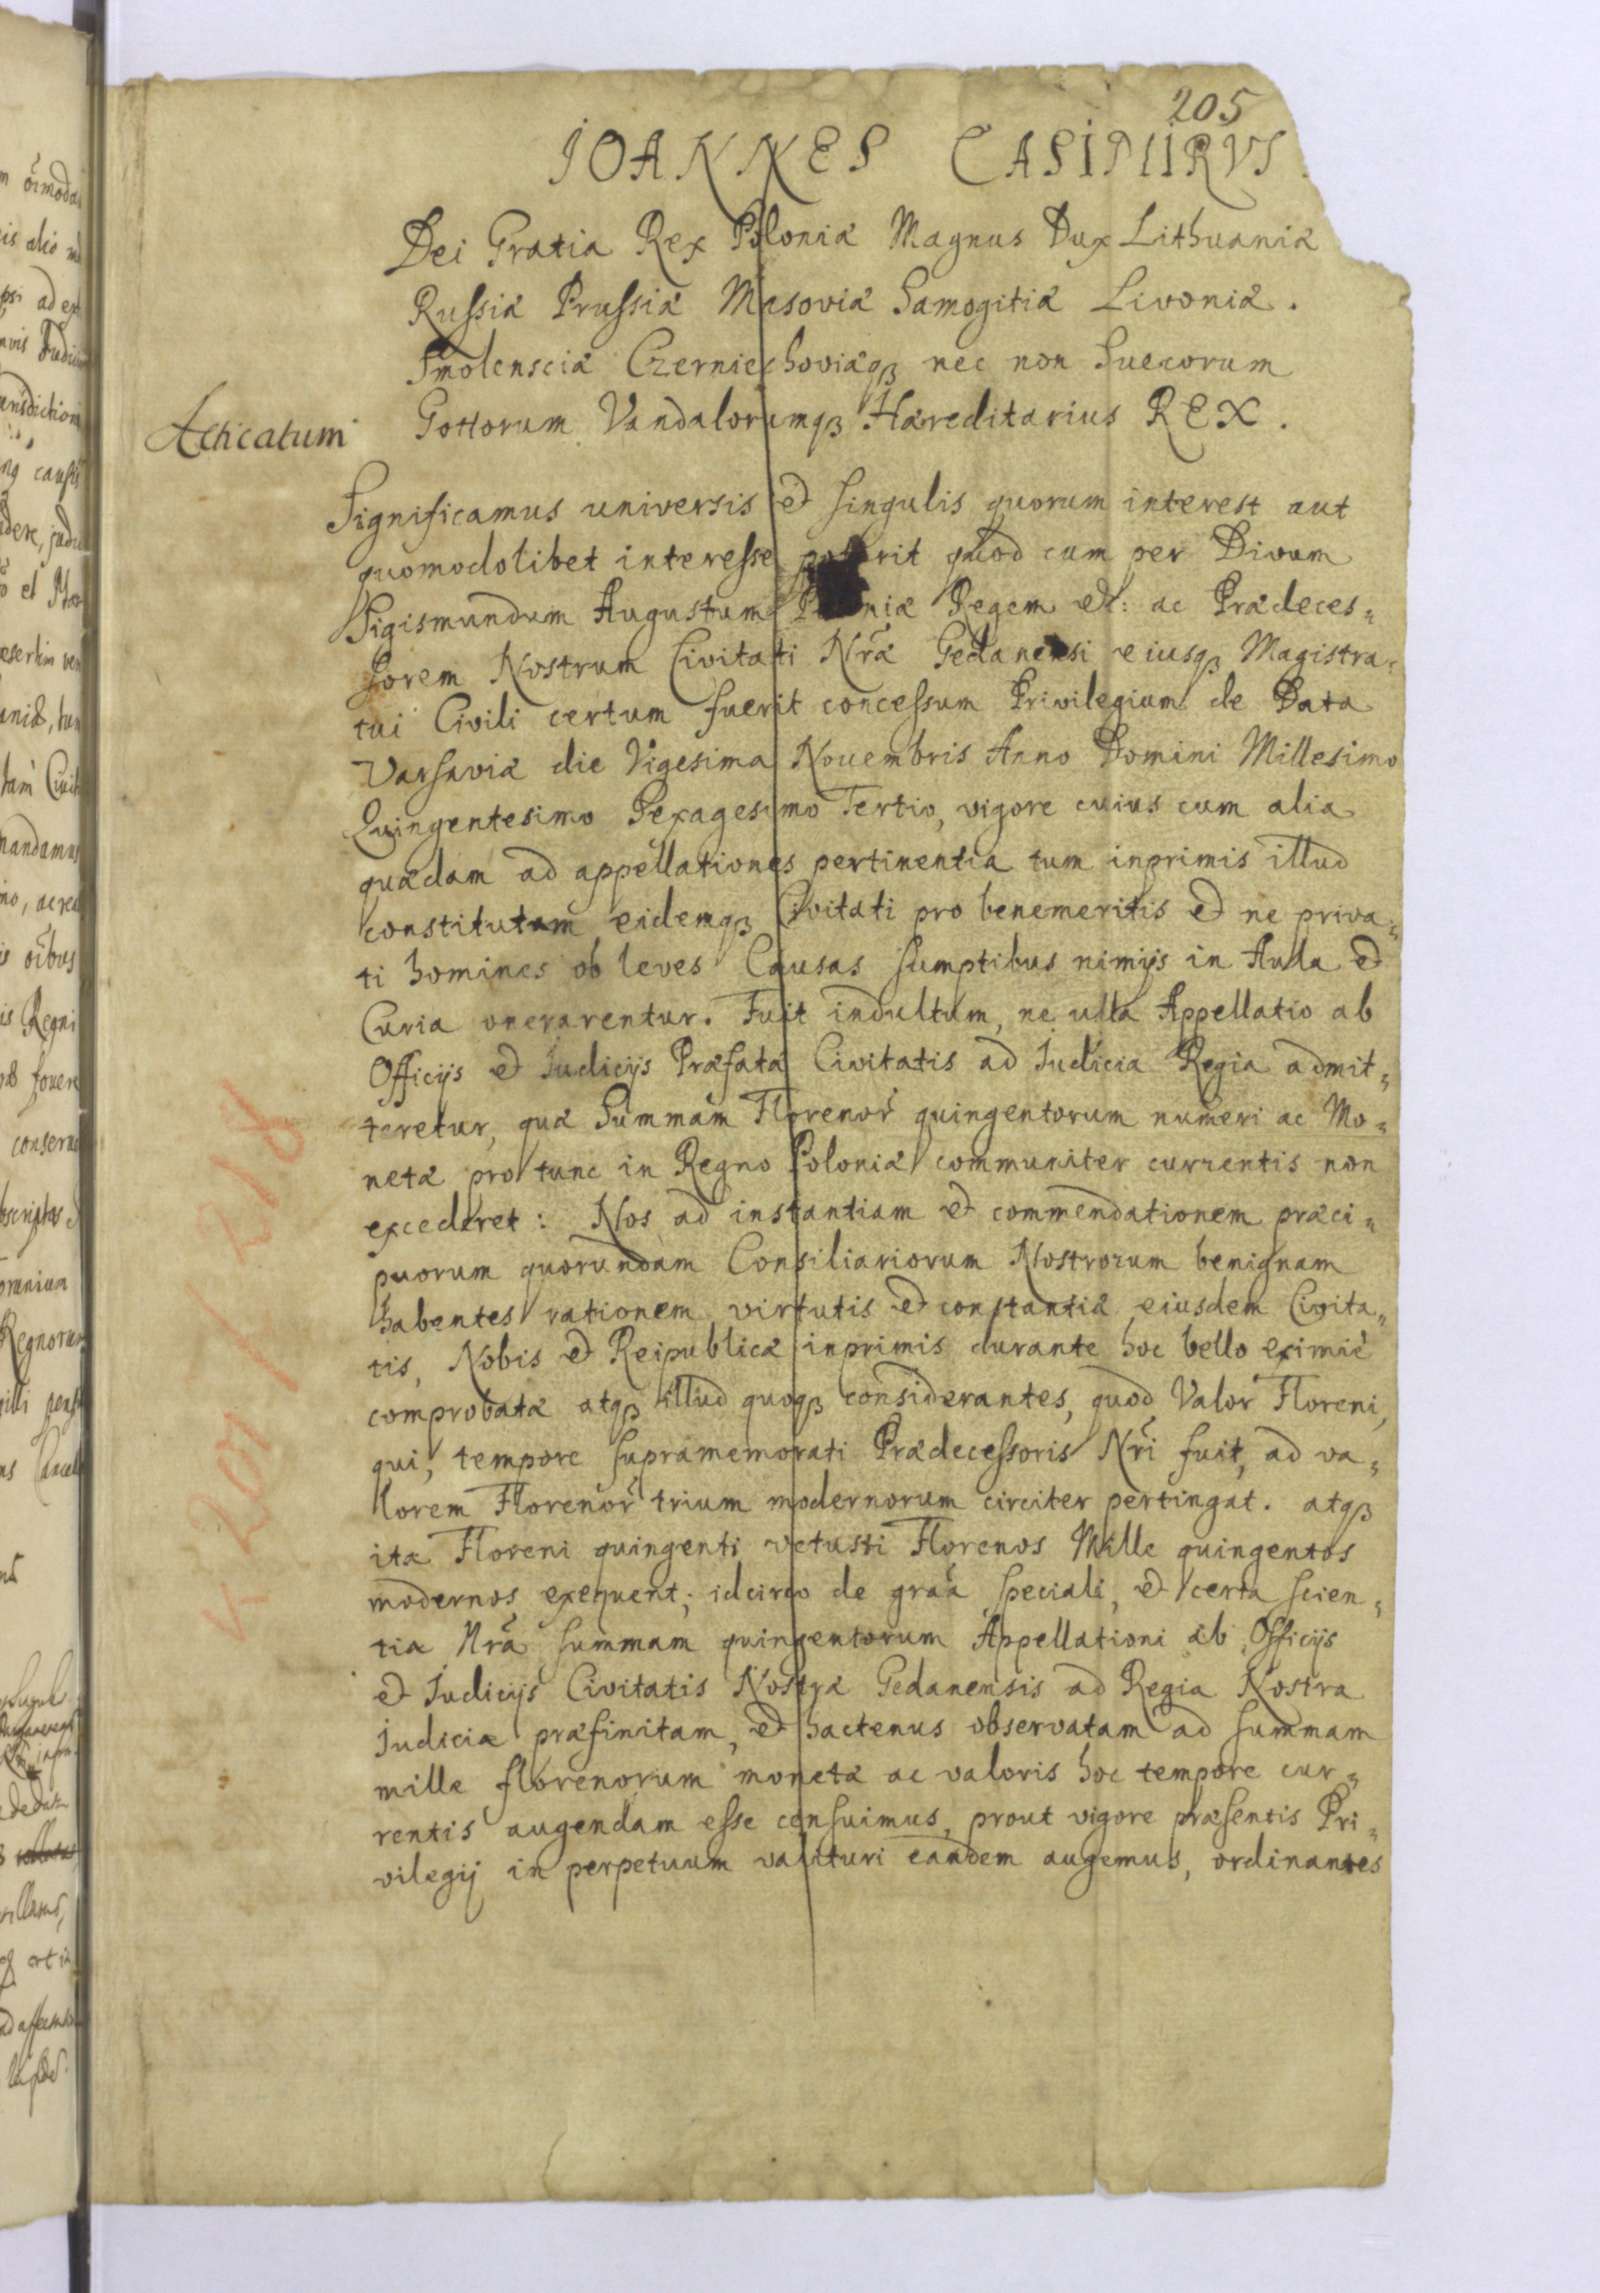 205
IOANNES CASIMIRVS.
Dei Gratia Rex Poloniæ Magnus Dux Lithuaniæ
Russiæ Prussiæ Masoviæ Samogitiæ Livoniæ.
Smolensciæ Czerniechoviæqꝫ nec non Suecorum
Acticatum
Gottorum Vandalorumqꝫ Hæreditarius REX.
Significamus universis et singulis quorum interest aut
quomodolibet interesse poterit quod cum per Divum
Sigismundum Augustum Poloniæ Regem et: ac Prædeces-
sorem Nostrum Civitati Nr̃æ Gedanensi eiusqꝫ Magistra-
tui Civili certum fuerit concessum Privilegium de Data
Varsaviæ die Vigesima Nouembris Anno Domini Millesimo
Quingentesimo Sexagesimo Tertio, vigore cuius cum alia
quædam ad appellationes pertinentia tum inprimis illud
constitutum eidemqꝫ Civitati pro benemeritis et ne priva-
ti homines ob leves Causas sumptibus nimijs in Aula et
Curia onerarentur. Fuit indultum, ne ulla Appellatio ab
Officijs et Iudicijs Præfatæ Civitatis ad Iudicia Regia admit-
teretur, quæ Summam Florenor̃ quingentorum numeri ac Mo-
netæ pro tunc in Regno Poloniæ communiter currentis non
excederet: Nos ad instantiam et commendationem præci-
puorum quorundam Consiliariorum Nostrorum benignam
habentes rationem virtutis et constantiæ eiusdem Civita-
tis, Nobis et Reipublicæ inprimis durante hoc bello eximiè
comprobatæ atqꝫ illud quoqꝫ considerantes, quod Valor Floreni,
qui, tempore supramemorati Prædecessoris Nr̃i fuit, ad va-
lorem Florenor̃ trium modernorum circiter pertingat. atqꝫ
ita Floreni quingenti vetusti Florenos Mille quingentos
modernos exequent; idcirco de gr̃aa speciali, et certa scien-
tia Nr̃a summam quingentorum Appellationi ab Officijs
et Iudicijs Civitatis Nostræ Gedanensis ad Regia Nostra
Iudicia præfinitam, et hactenus observatam ad summam
mille florenorum monetæ ac valoris hoc tempore cur-
rentis augendam esse censuimus, prout vigore præsentis Pri-
vilegij in perpetuum valituri eandem augemus, ordinantes
K 207/218